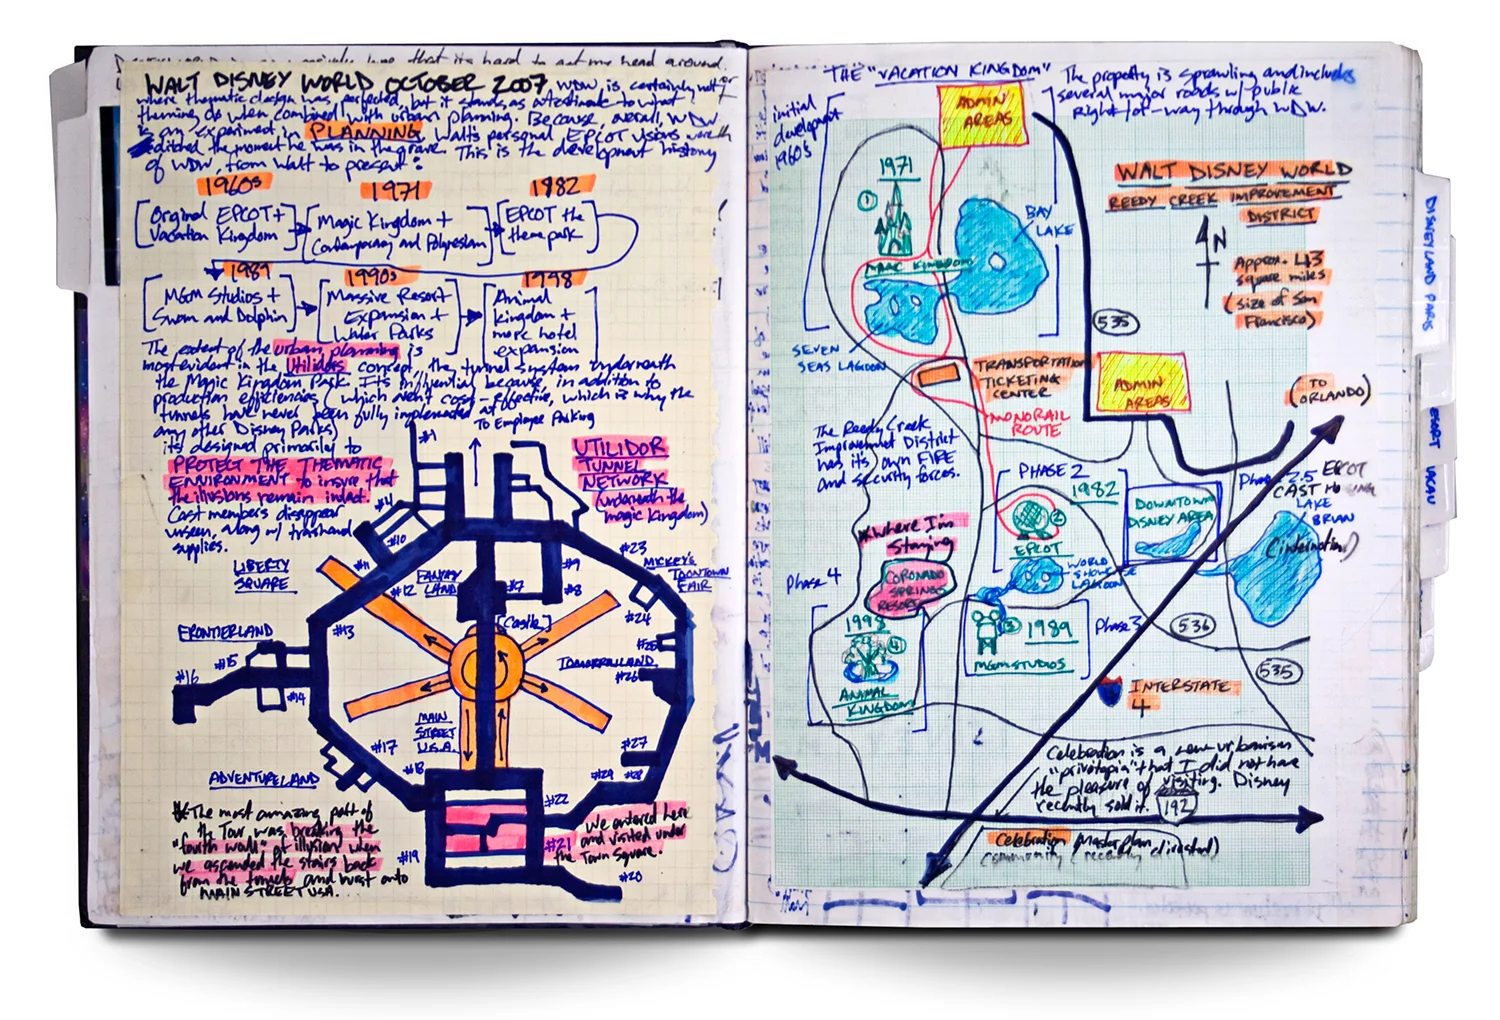 that its hard to get my head around.
WALT DISNEY WORLD OCTOBER 2007 WDW is certainly not
where thematic design was perfected, but it stands as a testimate to what
theming do when combined with urban planning. Because, overall, WDW
is an experiment in PLANNING. Walt's personal EPCOT visions were
edited the moment he was in the grave. This is the development history
of WDW, from Walt to present:
1960s 1971 1982
Orginal EPCOT +
Vacation Kingdom
Magic Kingdom +
Contemporary and Polynesian
EPCOT the
theme park
1989 1990s 1998
MGM Studios +
Swan and Dolphin
Massive Resort
Expansion +
Water Parks
Animal
Kingdom +
more hotel
expansion
The extent of the urban planning is
most evident in the Utilidors concept, the tunnel system underneath
the Magic Kingdom Park. Its influential because, in addition to
production efficiencies (which aren't cost-effective, which is why the
tunnels have never been fully implemented at
any other Disney Parks)
its designed primarily to
PROTECT THE THEMATIC
ENVIRONMENT to insure that
the illusions remain intact.
Cast members disappear
unseen, along w/ trash and
supplies.
To Employee Parking
UTILIDOR
TUNNEL
NETWORK
(underneath the
magic Kingdom)
#1
#4
#10
#11
#12
FANTASY
LAND
#7
#9
#8
#23
MICKEY'S
TOONTOWN
FAIR
#24
LIBERTY
SQUARE
[Castle]
FRONTIERLAND
#13
#15
#16
#14
#25
TOMORROWLAND
#26
MAIN
STREET
U.S.A.
#17
#18
#27
#28
#29
ADVENTURELAND
#22
#21
#19
#20
*The most amazing part of
the Tour was breaking the
"fourth wall" of illusion when
we ascended the stairs back
from the tunnels and burst onto
MAIN STREET USA.
We entered here
and visited under
the Town Square.
THE "VACATION KINGDOM"
initial
development
1960's
ADMIN
AREAS
The property is sprawling and includes
several major roads w/ public
Right-of-way through WDW.
WALT DISNEY WORLD
REEDY CREEK IMPROVEMENT
DISTRICT
N
Approx. 43
square miles
(size of San
Francisco)
1971
1
MAGIC KINGDOM
BAY
LAKE
SEVEN
SEAS LAGOON
535
TRANSPORTATION
TICKETING
CENTER
MONORAIL
ROUTE
ADMIN
AREAS
(TO
ORLANDO)
The Reedy Creek
Improvement District
has its own FIRE
and security forces.
PHASE 2
1982
2
EPCOT
WORLD
SHOWCASE
LAGOON
DOWNTOWN
DISNEY AREA
Phase 2.5 EPCOT
CAST HOUSING
LAKE
BRIAN
*Where I'm
Staying
CORONADO
SPRINGS
RESORT
Phase 4
1998
4
ANIMAL
KINGDOM
3
1989
MGM STUDIOS
Phase 3
536
535
INTERSTATE
4
Celebration is a new urbanism
"privotopia" that I did not have
the pleasure of visiting. Disney
recently sold it.
192
Celebration Master plan
community (recently divested)
DISNEYLAND PARIS
RESORT